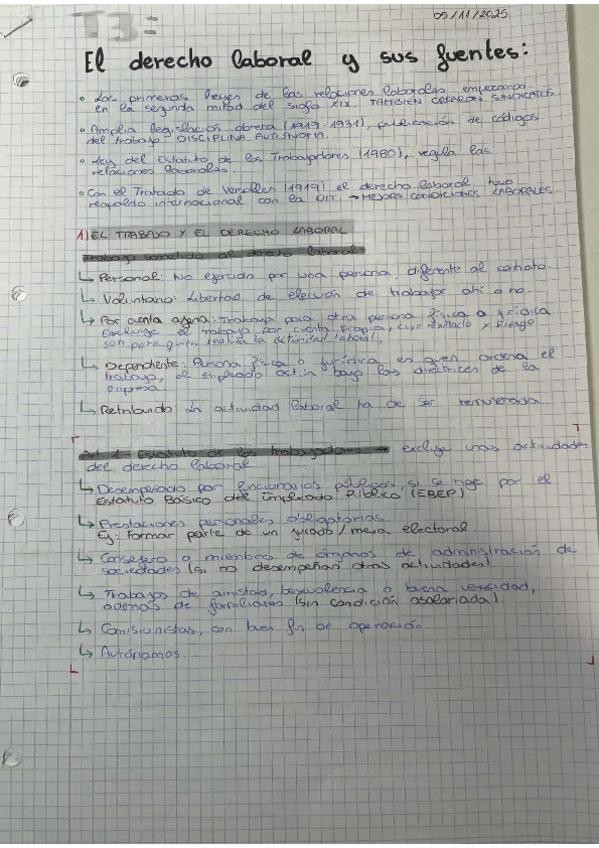 05/11/2025
T3:
El derecho laboral y sus fuentes:
• Las primeras leyes de las relaciones laborales empezaron
en la segunda mitad del siglo XIX. TAMBIÉN CREARON SINDICATOS
• Amplia legislación obrera (1917-1931), publicación de códigos
del trabajo. DISCIPLINA AUTÓNOMA.
• Ley del Estatuto de los Trabajadores (1980), regula las
relaciones laborales.
• Con el Tratado de Versalles (1919) el derecho laboral tuvo
respaldo internacional con la OIT. → MEJORA CONDICIONES LABORALES
1) EL TRABAJO Y EL DERECHO LABORAL
Trabajo sometido al derecho laboral
↳ Personal: No ejercido por una persona diferente al contrato.
↳ Voluntario: Libertad de elección de trabajar ahí o no.
↳ Por cuenta ajena: Trabaja para otra persona física o jurídica
Excluye el trabajo por cuenta propia, cuyo resultado y riesgo
son para quien realiza la actividad laboral.
↳ Dependiente: Persona física o jurídica es quien ordena el
trabajo, el empleado actúa bajo las directrices de la
empresa.
↳ Retribuido: La actividad laboral ha de ser remunerada.
Art. 1 Estatuto de los trabajadores → excluye unas actividades
del derecho laboral
↳ Desempeñado por funcionarios públicos, si se rige por el
Estatuto Básico del Empleado Público (EBEP)
↳ Prestaciones personales obligatorias.
Ej: Formar parte de un jurado/mesa electoral
↳ Consejero o miembros de órganos de administración de
sociedades (si no desempeñan otras actividades)
↳ Trabajos de amistad, benevolencia o buena vecindad,
además de familiares (sin condición asalariada).
↳ Comisionistas, con buen fin de operación
↳ Autónomos.